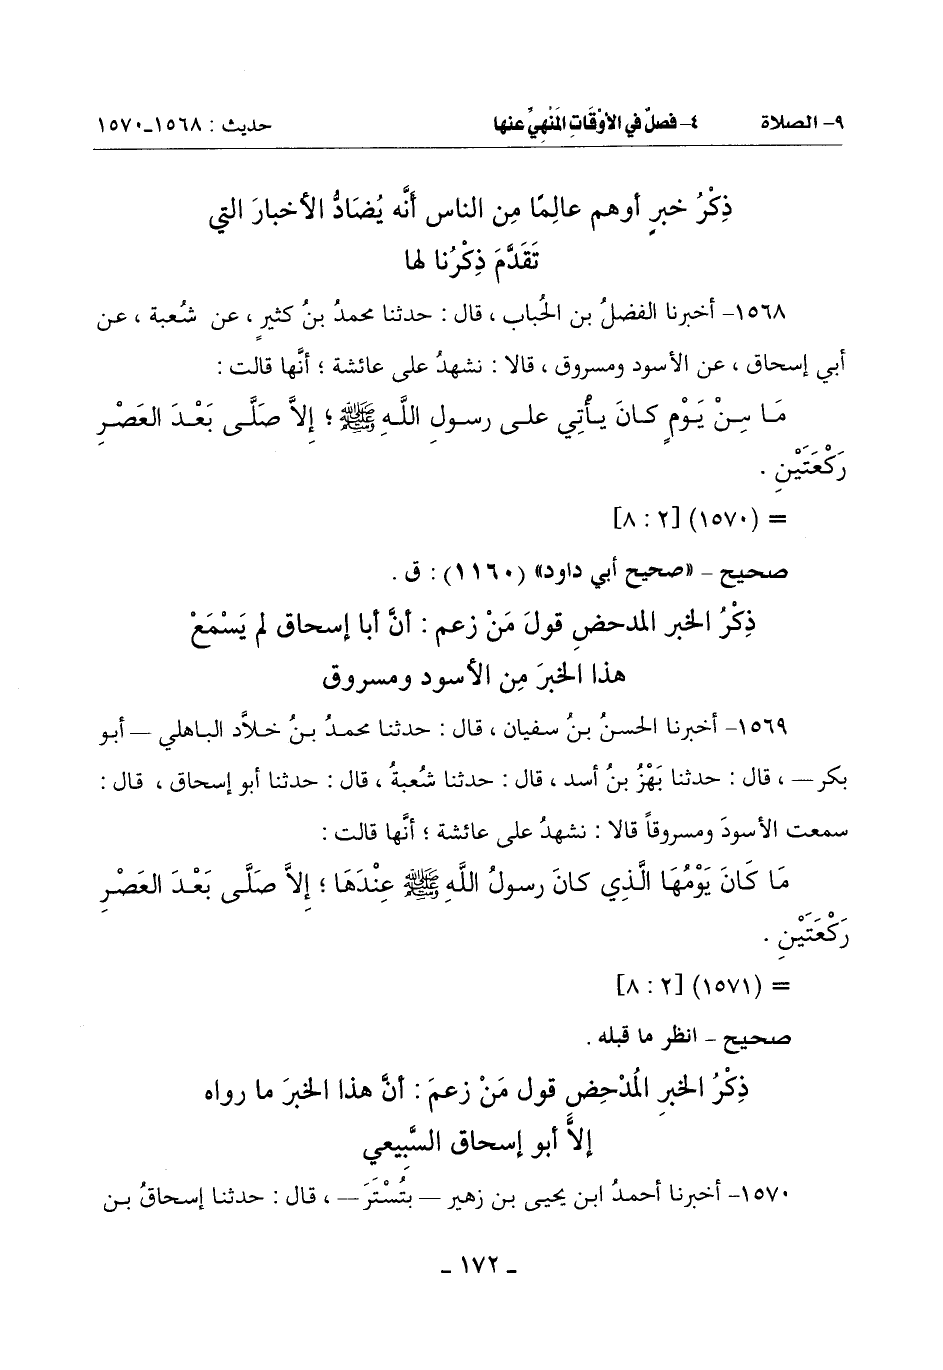 ٩- الصلاة ٤- فصلٌ في الأوْقَاتِ المَنْهِيِّ عنها حديث : ١٥٦٨-١٥٧٠
ذِكْرُ خبرٍ أوهم عالِمًا مِن الناس أنَّه يُضَادُّ الأخبارَ التي
تَقَدَّمَ ذِكْرُنا لها
١٥٦٨- أخبرنا الفضلُ بن الحُباب ، قال : حدثنا محمدُ بنُ كثيرٍ ، عن شُعبة ، عن
أبي إسحاق ، عن الأسود ومسروق ، قالا : نشهدُ على عائشة ؛ أنَّها قالت :
مَا مِنْ يَوْمٍ كانَ يأتِي على رسولِ اللَّهِ ﷺ ؛ إلاَّ صَلَّى بَعْدَ العَصْرِ
رَكْعَتَيْنِ .
= (١٥٧٠) [٢ : ٨]
صحيح - «صحيح أبي داود» (١١٦٠) : ق .
ذِكْرُ الخبر المدحضِ قولَ مَنْ زعم : أنَّ أبا إسحاق لم يَسْمَعْ
هذا الخبرَ مِن الأسود ومسروق
١٥٦٩- أخبرنا الحسنُ بنُ سفيان ، قال : حدثنا محمدُ بنُ خلاَّد الباهلي — أبو
بكر — ، قال : حدثنا بَهْزُ بنُ أسد ، قال : حدثنا شُعبةُ ، قال : حدثنا أبو إسحاق ، قال :
سمعت الأسودَ ومسروقاً قالا : نشهدُ على عائشة ؛ أنَّها قالت :
مَا كَانَ يَوْمُهَا الَّذِي كانَ رسولُ اللَّهِ ﷺ عِنْدَهَا ؛ إلاَّ صَلَّى بَعْدَ العَصْرِ
رَكْعَتَيْنِ .
= (١٥٧١) [٢ : ٨]
صحيح - انظر ما قبله .
ذِكْرُ الخبرِ المُدْحِضِ قول مَنْ زعمَ : أنَّ هذا الخبرَ ما رواه
إلاَّ أبو إسحاق السَّبِيعي
١٥٧٠- أخبرنا أحمدُ ابن يحيى بن زهير — بتُسْتَرَ — ، قال : حدثنا إسحاقُ بن
- ١٧٢ -